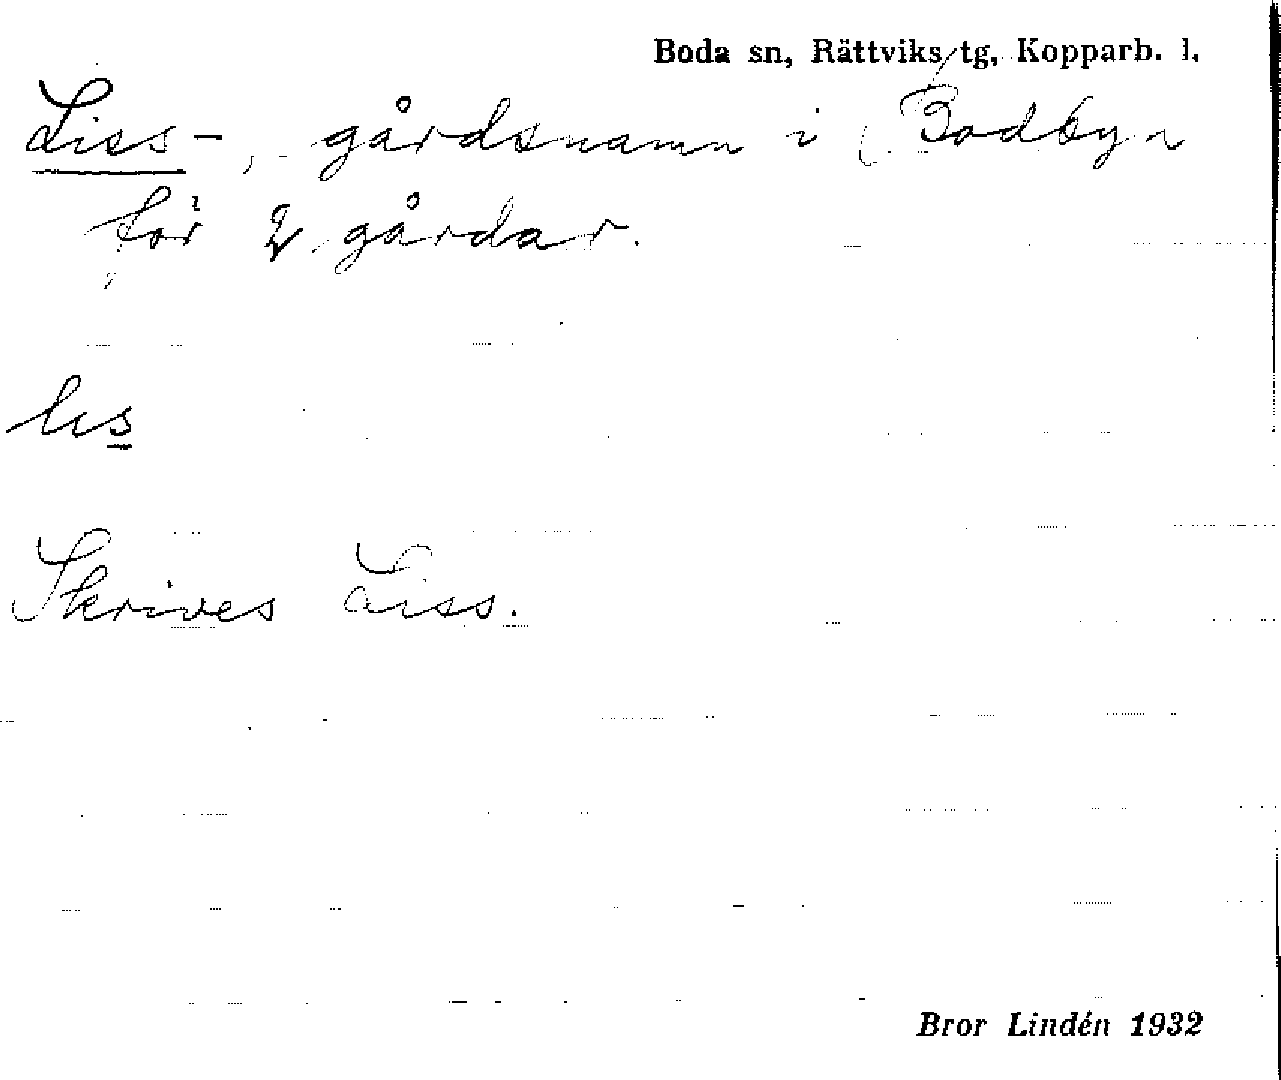 Boda sn, Rättviks tg, Kopparb. l.
Liss-, gårdsnamn i Bodbyn
för 2 gårdar.
lis
Skrives Liss.
Bror Lindén 1932